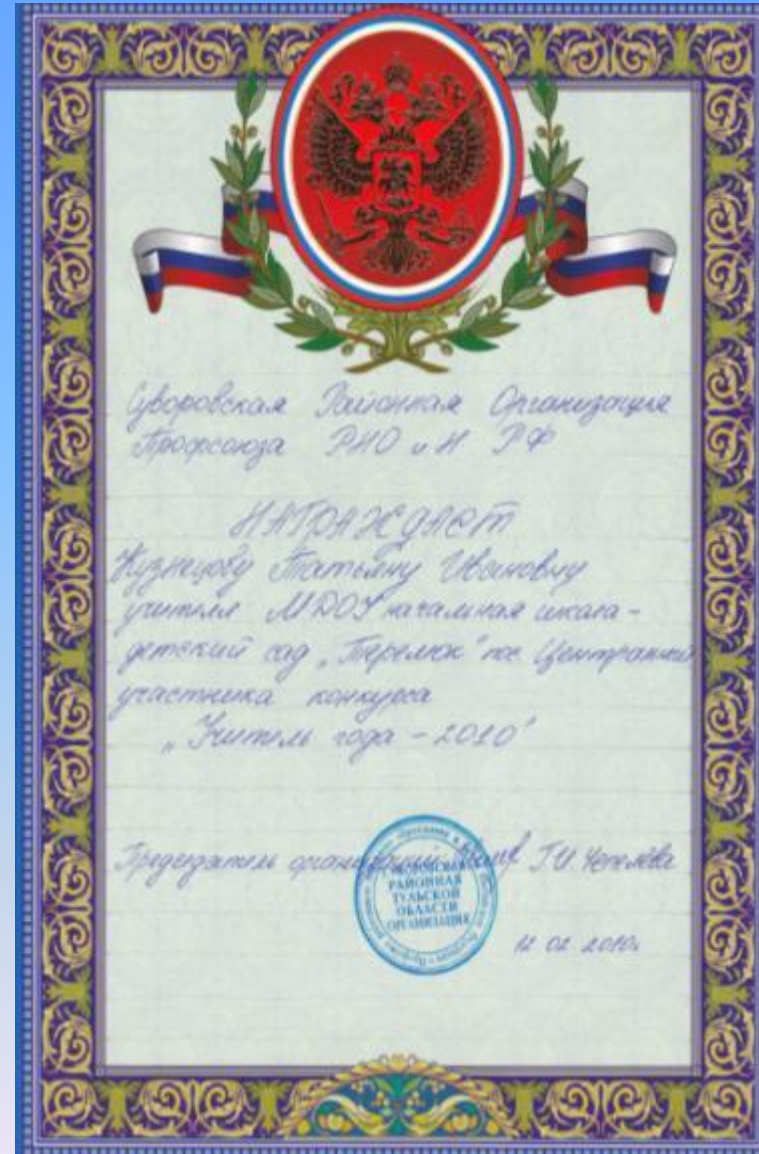 Суворовская Районная Организация
Профсоюза РНО и Н РФ
НАГРАЖДАЕТ
Кузнецову Татьяну Ивановну
учителя МДОУ начальная школа-
детский сад „Теремок" пос Центральный
участника конкурса
„Учитель года - 2010"
Председатель организации Т.И. Чепелёва
РАЙОННАЯ
ТУЛЬСКОЙ
ОБЛАСТИ
ОРГАНИЗАЦИЯ
12 02 2010г